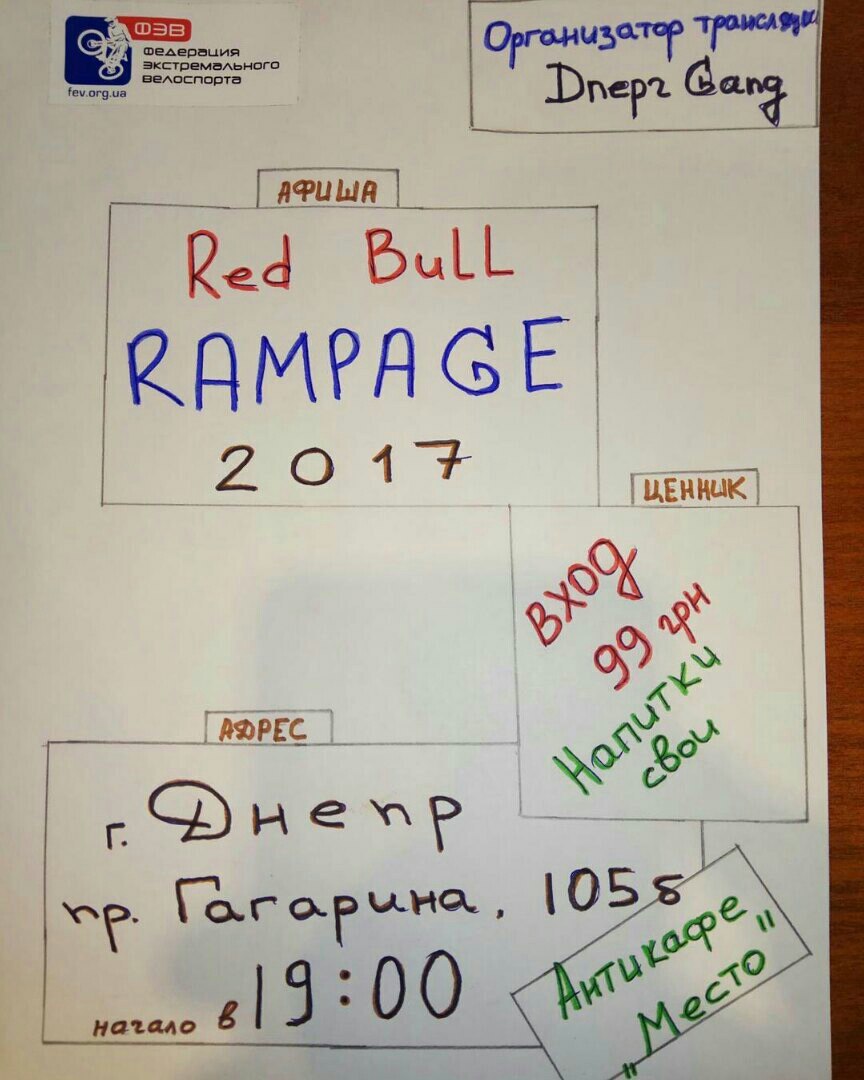 ФЭВ
Федерация
экстремального
велоспорта
fev.org.ua
Организатор трансляции
Dnepr Gang
АФИША
Red BuLL
RAMPAGE
2017
ЦЕННИК
ВХОД
99 грн
Напитки
свои
АДРЕС
г. Днепр
пр. Гагарина, 105б
начало в 19:00
Антикафе
"Место"